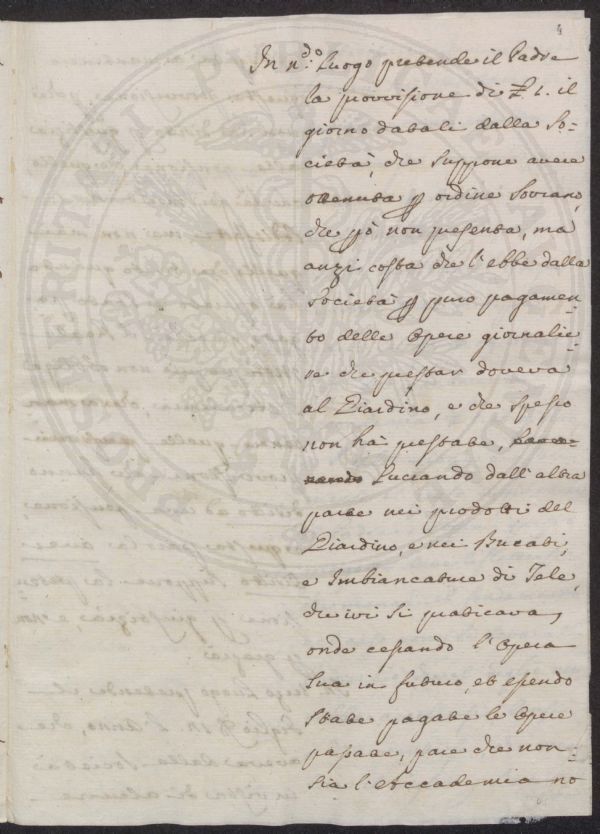 4
In n.do Luogo pretende il Padre
la provvisione di £ 1. il
giorno datali dalla So:
cietà, che suppone avere
ottenuta p ordine Sovrano,
che pò non presenta, ma
anzi costa che l'ebbe dalla
Società p puro pagamen:
to delle Opere giornalie:
re che prestar doveva
al Giardino, e che spesso
non hà prestate,
Lucrando dall'altra
parte nei prodotti del
Giardino, e nei Bucati,
e Imbiancature di Tele,
che ivi si praticava,
onde cessando l'Opera
sua in futuro, et essendo
state pagate le Opere
passate, pare che non
sia l'Accademia no